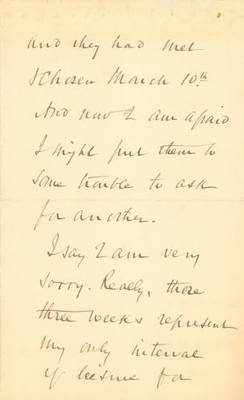 and they had met
& chosen March 10th.
And now I am afraid
I might put them to
some trouble to ask
for another.
I say I am very
sorry. Really, those
three weeks represent
my only interval
of leisure for